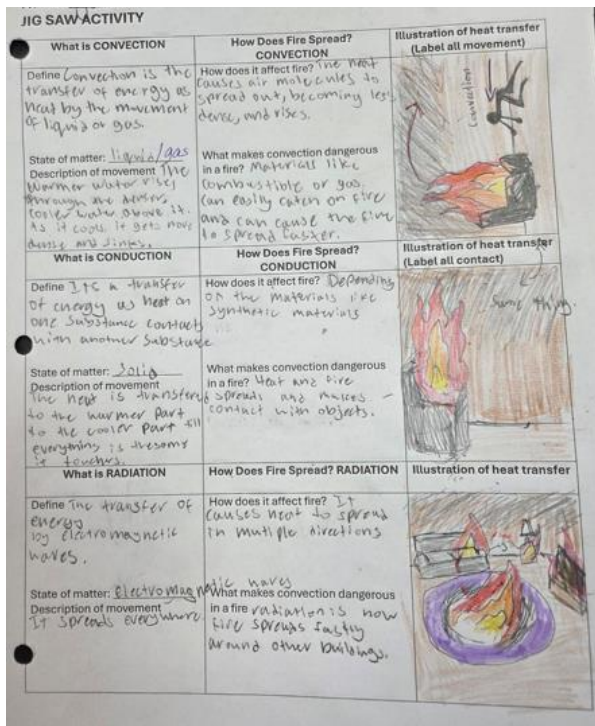 JIG SAW ACTIVITY
What is CONVECTION
How Does Fire Spread?
CONVECTION
Illustration of heat transfer
(Label all movement)
Define Convection is the
transfer of energy as
heat by the movement
of liquid or gas.
State of matter: liquid/gas
Description of movement The
warmer water rises
through the denser,
cooler water above it.
As it cools it gets more
dense and sinks.
How does it affect fire? The heat
causes air molecules to
spread out, becoming less
dense, and rises.
What makes convection dangerous
in a fire? Materials like
combustible or gas.
can easily catch on fire
and can cause the fire
to spread faster.
Convection
What is CONDUCTION
How Does Fire Spread?
CONDUCTION
Illustration of heat transfer
(Label all contact)
Define Its a transfer
of energy as heat on
one substance contacts
with another substance
State of matter: Solid
Description of movement
The heat is transfered
to the warmer part
to the cooler part till
everything is the same
it touches.
How does it affect fire? Depending
on the materials like
synthetic materials
What makes convection dangerous
in a fire? Heat and fire
spreads and makes
contact with objects.
Same thing.
What is RADIATION
How Does Fire Spread? RADIATION
Illustration of heat transfer
Define The transfer of
energy
by electromagnetic
waves.
State of matter: electromagnetic waves
Description of movement
It spreads everywhere.
How does it affect fire? It
causes heat to spread
in mutiple directions
What makes convection dangerous
in a fire radiation is how
fire spreads fastly
around other buildings.